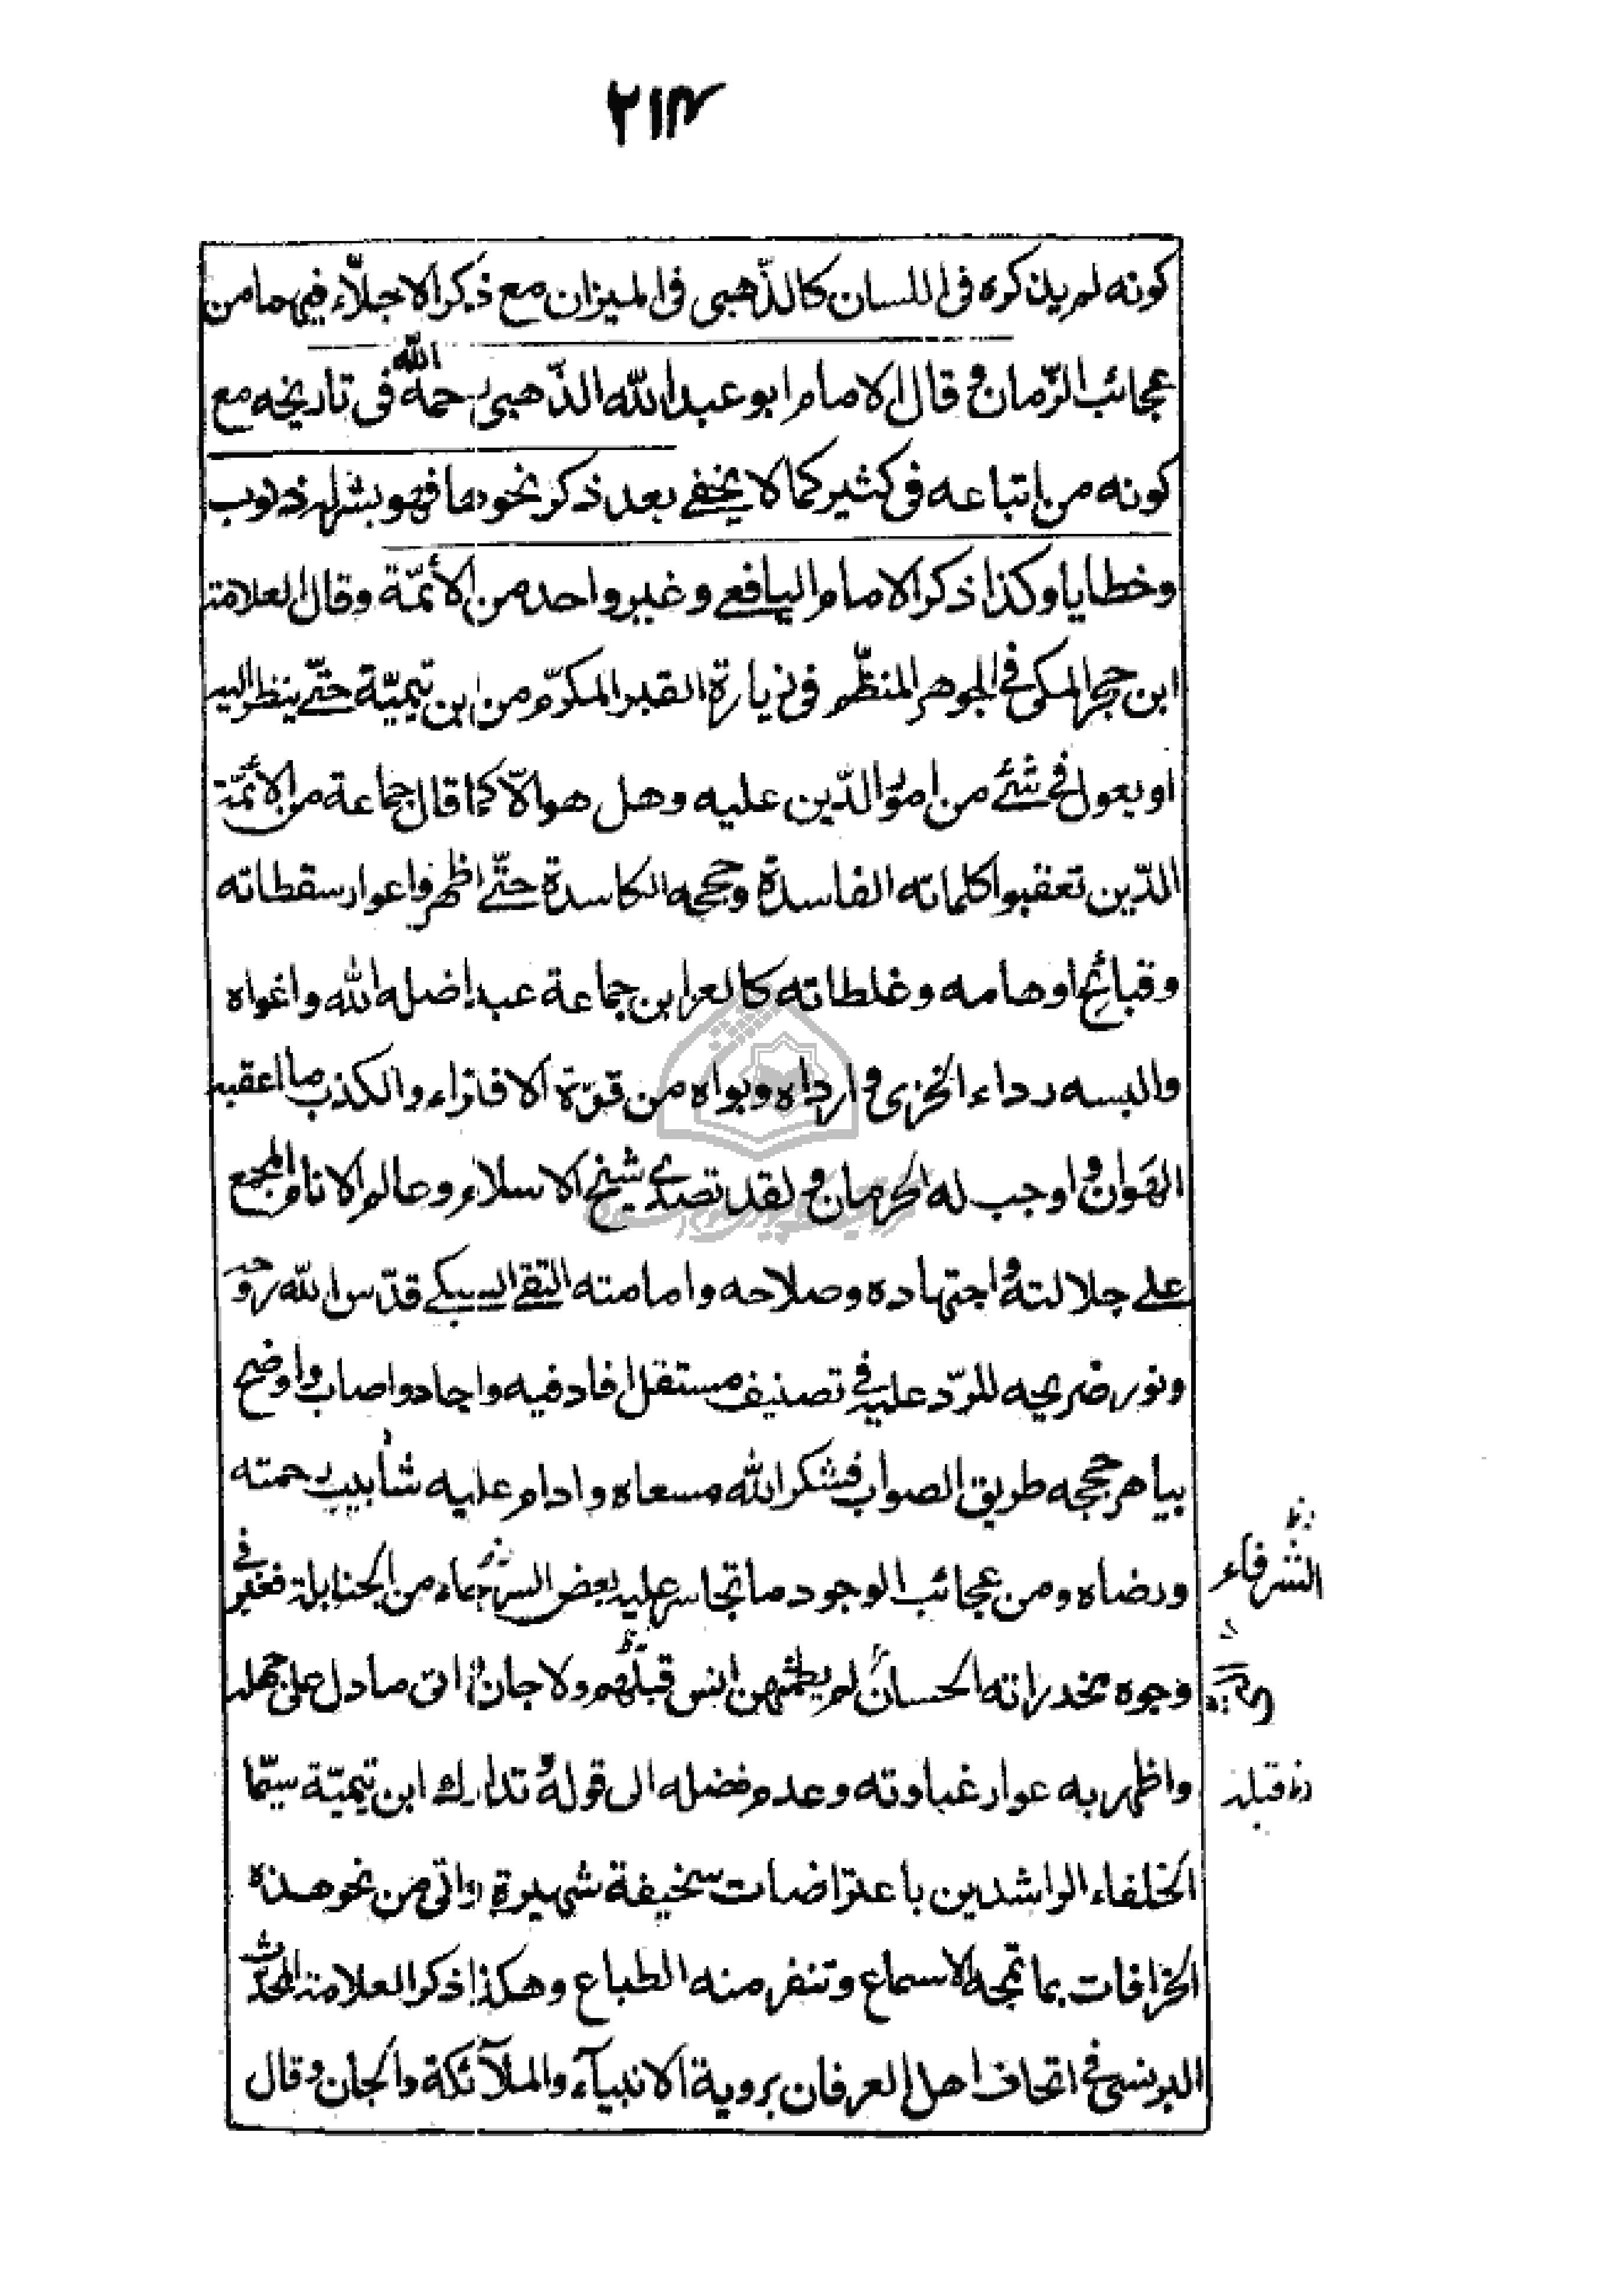 ٢١٣
كونه لم يذكره فى اللسان كالذّهبى فى الميزان مع ذكر الاجلّاء فيهما من
عجائب الزّمان و قال الامام ابو عبد الله الذّهبى رحمه الله فى تاريخه مع
كونه من اتباعه فى كثير كما لا يخفے بعد ذكر نحو ما فهو بشر له ذنوب
وخطايا وكذا ذكر الامام اليافعے وغير واحد من الأئمّة وقال العلامة
ابن حجر المكى فى الجوهر المنظّم فى زيارة القبر المكرّم من ابن تيميّة حتّے ينظر اليه
او يعول فى شئے من امور الدّين عليه وهل هو الّا كما قال جماعة من الأئمّة
الذّين تعقبوا كلماته الفاسدة وحججه الكاسدة حتّے اظهروا عوار سقطاته
وقبائح اوهامه وغلطاته كالعز ابن جماعة عبد اضله الله واغواه
والبسه رداء الخزى و ارداه وبواه من قوّة الافتراء والكذب ما اعقبه
الهَوان و اوجب له الحرمان و لقد تصدے شيخ الاسلام وعالم الانام المجمع
علے جلالته و اجتهاده وصلاحه وامامته التقے السبكے قدّس الله روحه
ونور ضريحه للردّ عليه فے تصنيف مستقل افاد فيه واجاد واصاب واوضح
بباهر حججه طريق الصواب فشكر الله مسعاه وادام عليه شأبيب رحمته
ورضاه ومن عجائب الوجود ما تجاسر عليه بعض السرجماء من الحنابلة فغبر فے
الشرفاء
وجوه مخدراته الحسان لم يطمثهن انس قبلهم ولا جان و اتى ما دل على جهله
واظهر به عوار غباوته وعدم فضله الى قوله و تدارك ابن تيميّة سيّما
قبله
الخلفاء الراشدين باعتراضات سخيفة شهيرة واتى من نحو هذه
الخرافات بما تمجه الاسماع وتنفر منه الطباع وهكذا ذكر العلامة المحدّث
البرنسى فے اتحاف اهل العرفان بروية الانبيآء والملآئكة والجان و قال